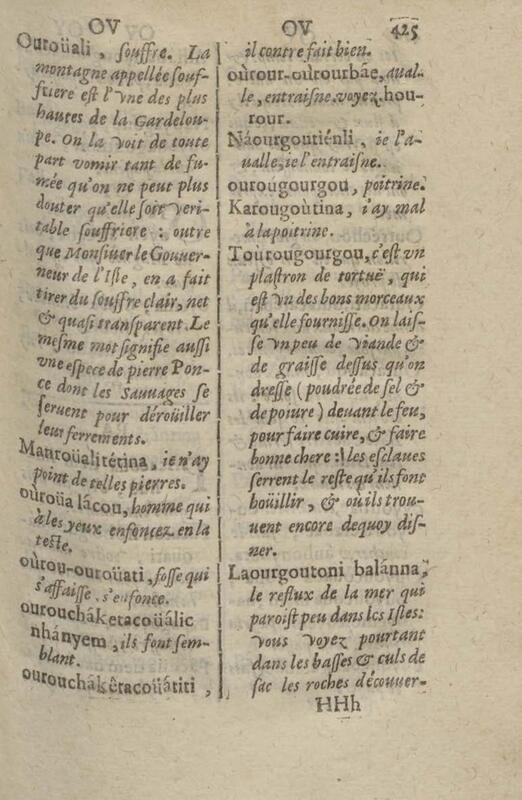 OV
OV
425
Ouroüali, souffre. La
montagne appellée souf-
friere est l'vne des plus
hautes de la Gardelou-
pe. On la voit de toute
part vomir tant de fu-
mée qu'on ne peut plus
douter qu'elle soit veri-
table souffriere : outre
que Monsiuer le Gouuer-
neur de l'Isle, en a fait
tirer du souffre clair, net
& quasi transparent. Le
mesme mot signifie aussi
vne espece de pierre Pon-
ce dont les Sauuages se
seruent pour déroüiller
leur ferrements.
Manroüalitétina, ie n'ay
point de telles pierres.
ouroüa lácou, homme qui
à les yeux enfoncez en la
teste.
oùrou-ouroüati, fosse qui
s'affaisse, s'enfonce.
ouroucháketacoüálic
nhányem, ils font sem-
blant.
ourouchákêtacoüátiti,
il contre fait bien.
oùrour-oùrourbáe, aual-
le, entraisne. voyez hou-
rour.
Náourgoutiénli, ie l'a-
ualle, ie l'entraisne.
ourougourgou, poitrine.
Karougoùtina, i'ay mal
à la poitrine.
Toùrougourgou, c'est vn
plastron de tortuë, qui
est vn des bons morceaux
qu'elle fournisse. On lais-
se vn peu de viande &
de graisse dessus qu'on
dresse (poudrée de sel &
de poiure) deuant le feu,
pour faire cuire, & faire
bonne chere : les esclaues
serrent le reste qu'ils font
boüillir, & où ils trou-
uent encore dequoy dis-
ner.
Laourgoutoni balánna,
le reflux de la mer qui
paroist peu dans les Isles:
vous voyez pourtant
dans les basses & culs de
sac les roches découuer-
HHh